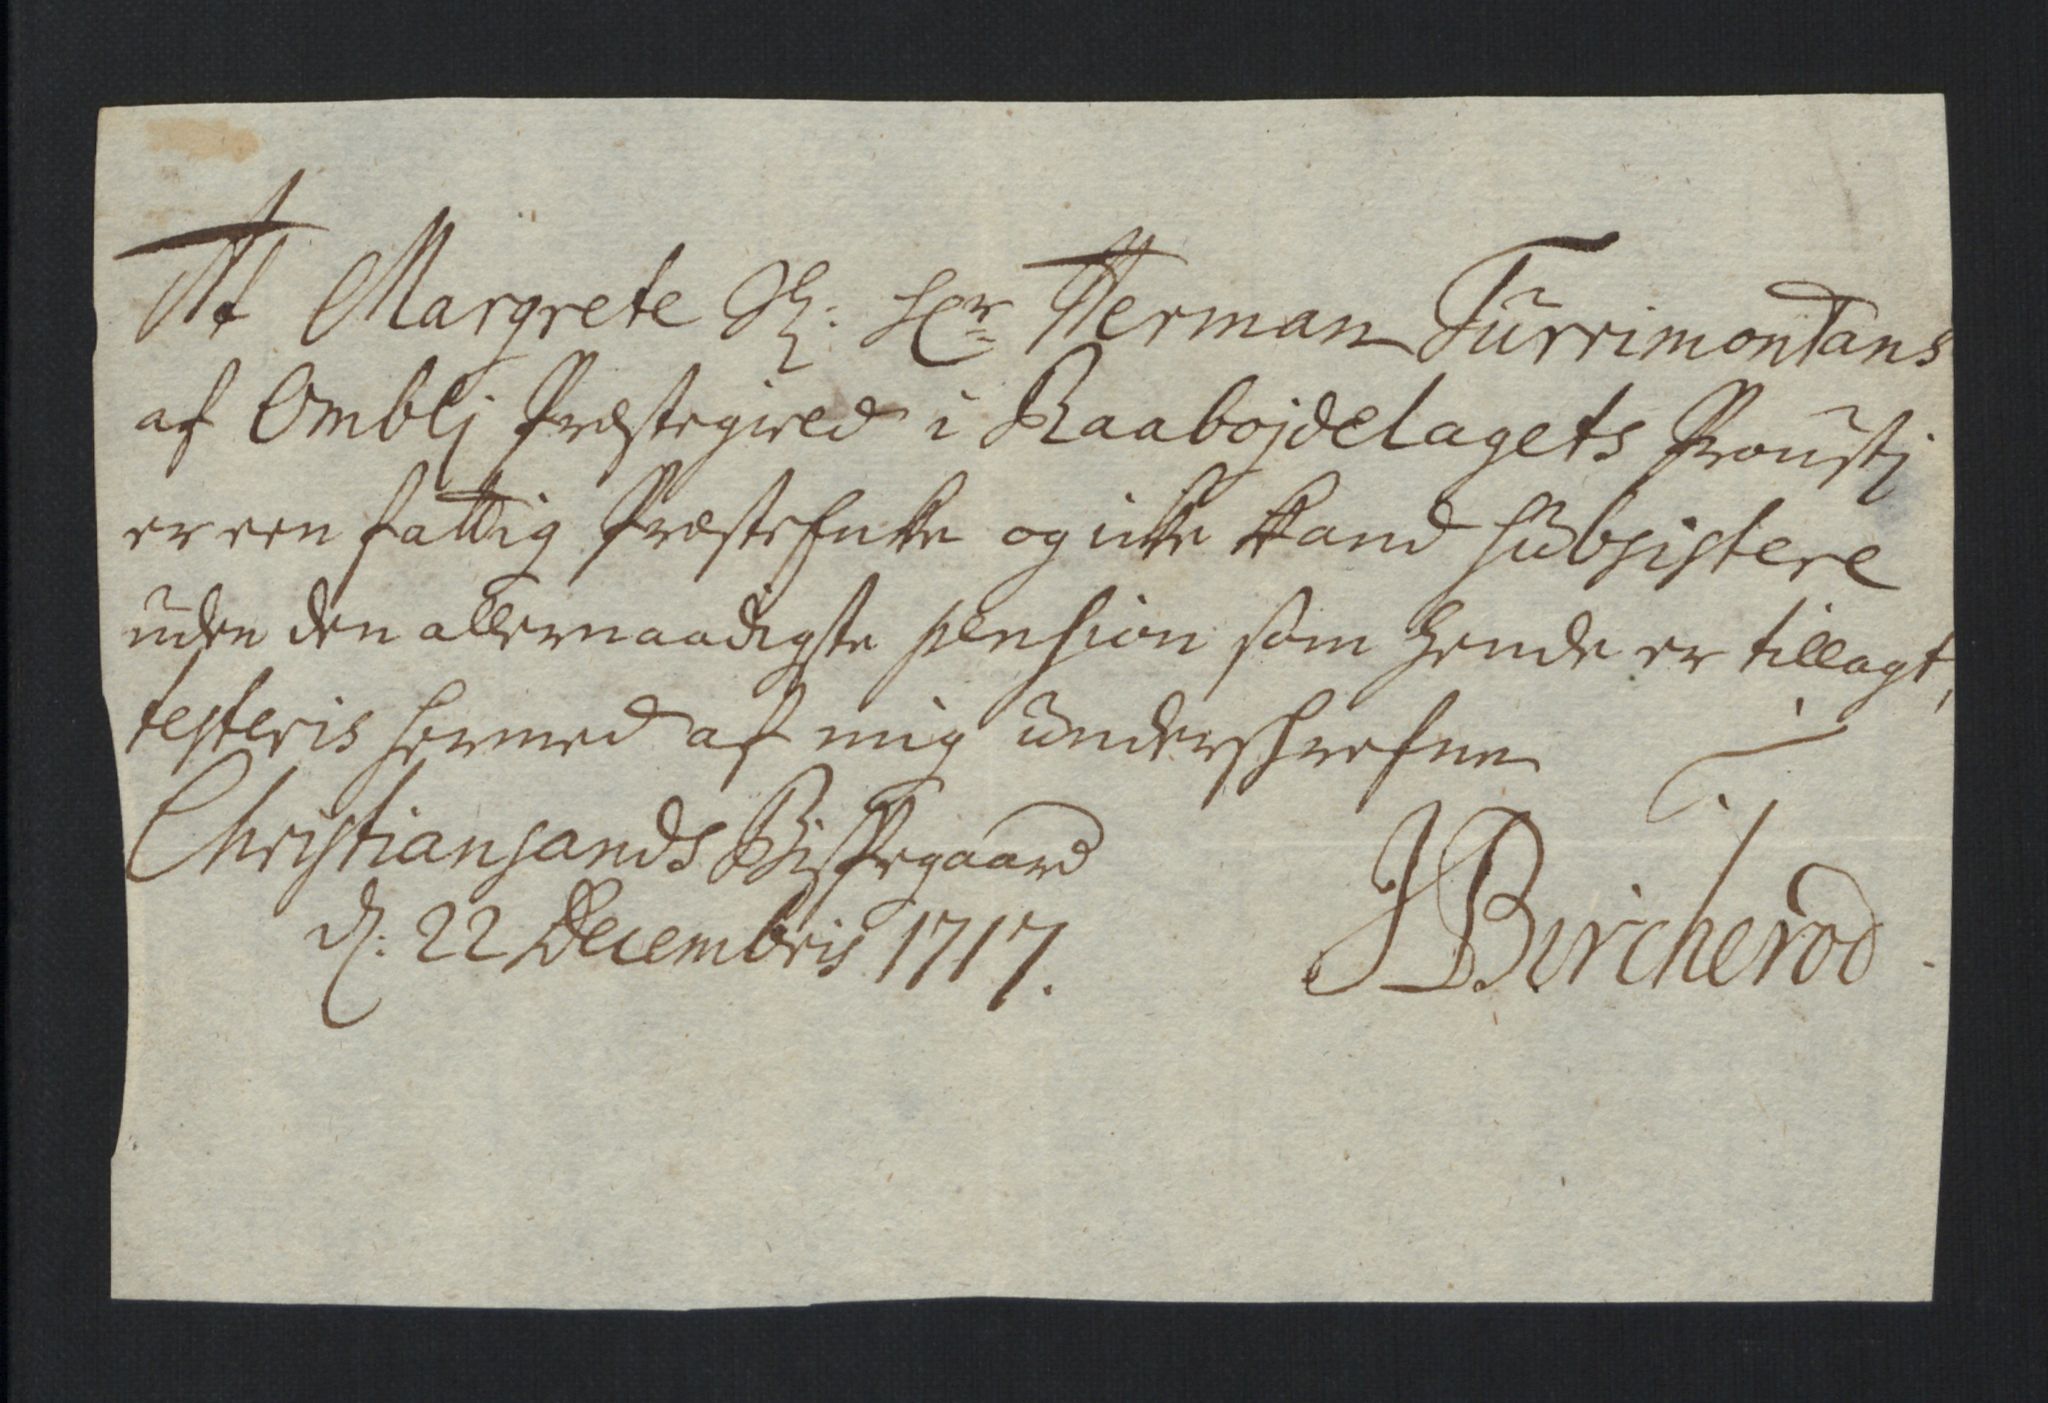 At Margrete Sl: Hr Herman Turrimontans
af Omblj Præstegield i Raabojdelagets Proustj
er een fattig Præsteencke og icke kand subsistere
uden den allernaadigste pension som hende er tillagt,
testeris hermed af mig underschrefne
Christiansands Bispegaard
d: 22 Decembris 1717.
JBircherod